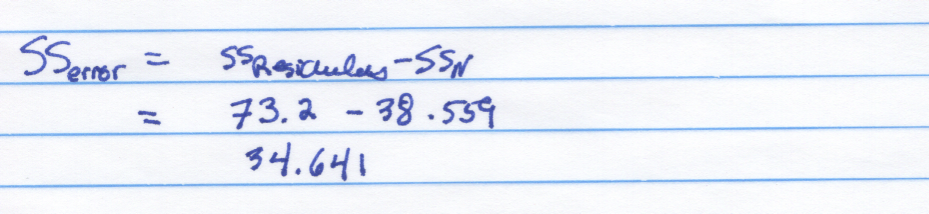 SSerror = SSResiduals - SSN
= 73.2 - 38.559
34.641